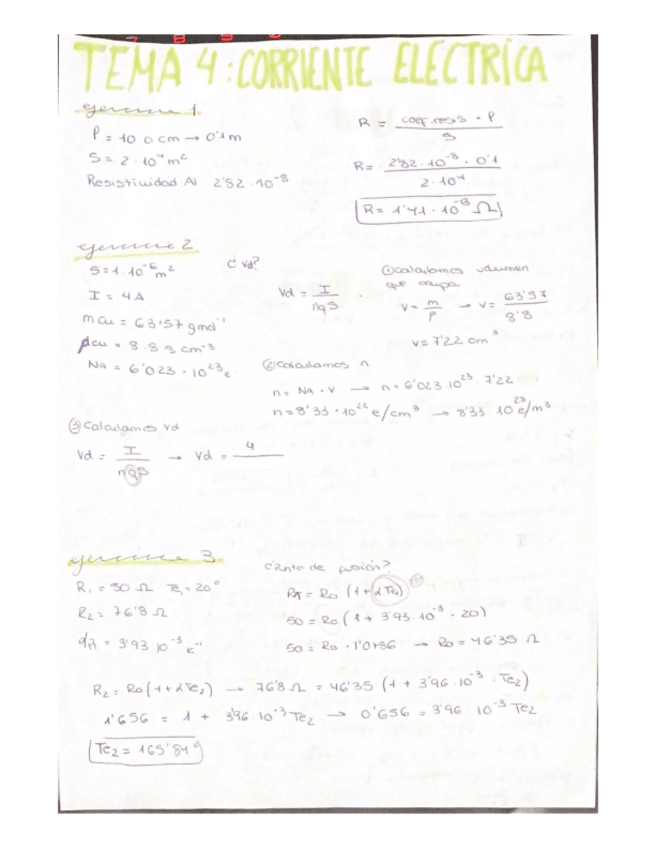 TEMA 4: CORRIENTE ELÉCTRICA
ejercicio 1
l = 10 cm → 0'1 m
S = 2 · 10⁻⁴ m²
Resistividad Al 2'82 · 10⁻⁸
R = coef.resis · l / S
R = 2'82 · 10⁻⁸ · 0'1 / 2 · 10⁻⁴
R = 1'41 · 10⁻⁸ Ω
ejercicio 2
S = 1 · 10⁻⁶ m²
I = 4 A
m cu = 63'57 g mol⁻¹
ρcu = 8.8 g cm⁻³
NA = 6'023 · 10²³ e
¿Vd?
Vd = I / nqS
① Calculamos volumen
que ocupa
V = m / ρ → V = 63'57 / 8'8
V = 7'22 cm³
② Calculamos n
n = NA · V → n = 6'023 · 10²³ · 7'22
n = 8'33 · 10²² e/cm³ → 8'33 · 10²⁸ e/m³
③ Calculamos Vd
Vd = I / nqS → Vd = 4 /
ejercicio 3
R₁ = 50 Ω Tc₁ = 20°
R₂ = 76'8 Ω
= 3'93 · 10⁻³ K⁻¹
¿Punto de fusión?
RT = R₀ (1 + α Tc₁)
50 = R₀ (1 + 3'93 · 10⁻³ · 20)
50 = R₀ · 1'0786 → R₀ = 46'35 Ω
R₂ = R₀ (1 + α Tc₂) → 76'8 Ω = 46'35 (1 + 3'96 · 10⁻³ · Tc₂)
1'656 = 1 + 3'96 · 10⁻³ Tc₂ → 0'656 = 3'96 · 10⁻³ Tc₂
Tc₂ = 165'84°